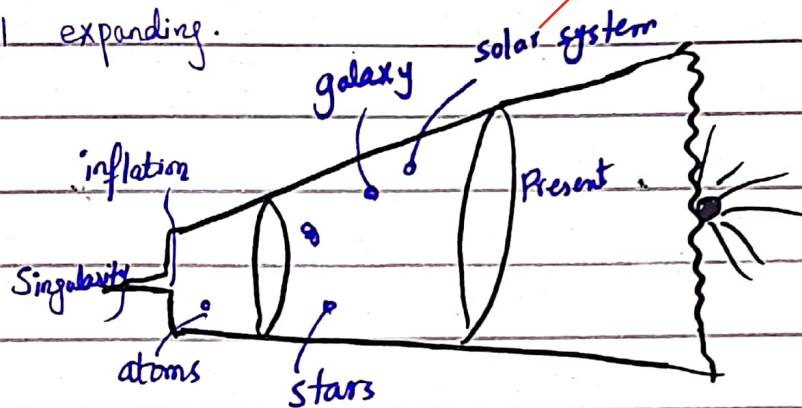 expanding.
solar system
galaxy
inflation
Present
Singularity
atoms
stars